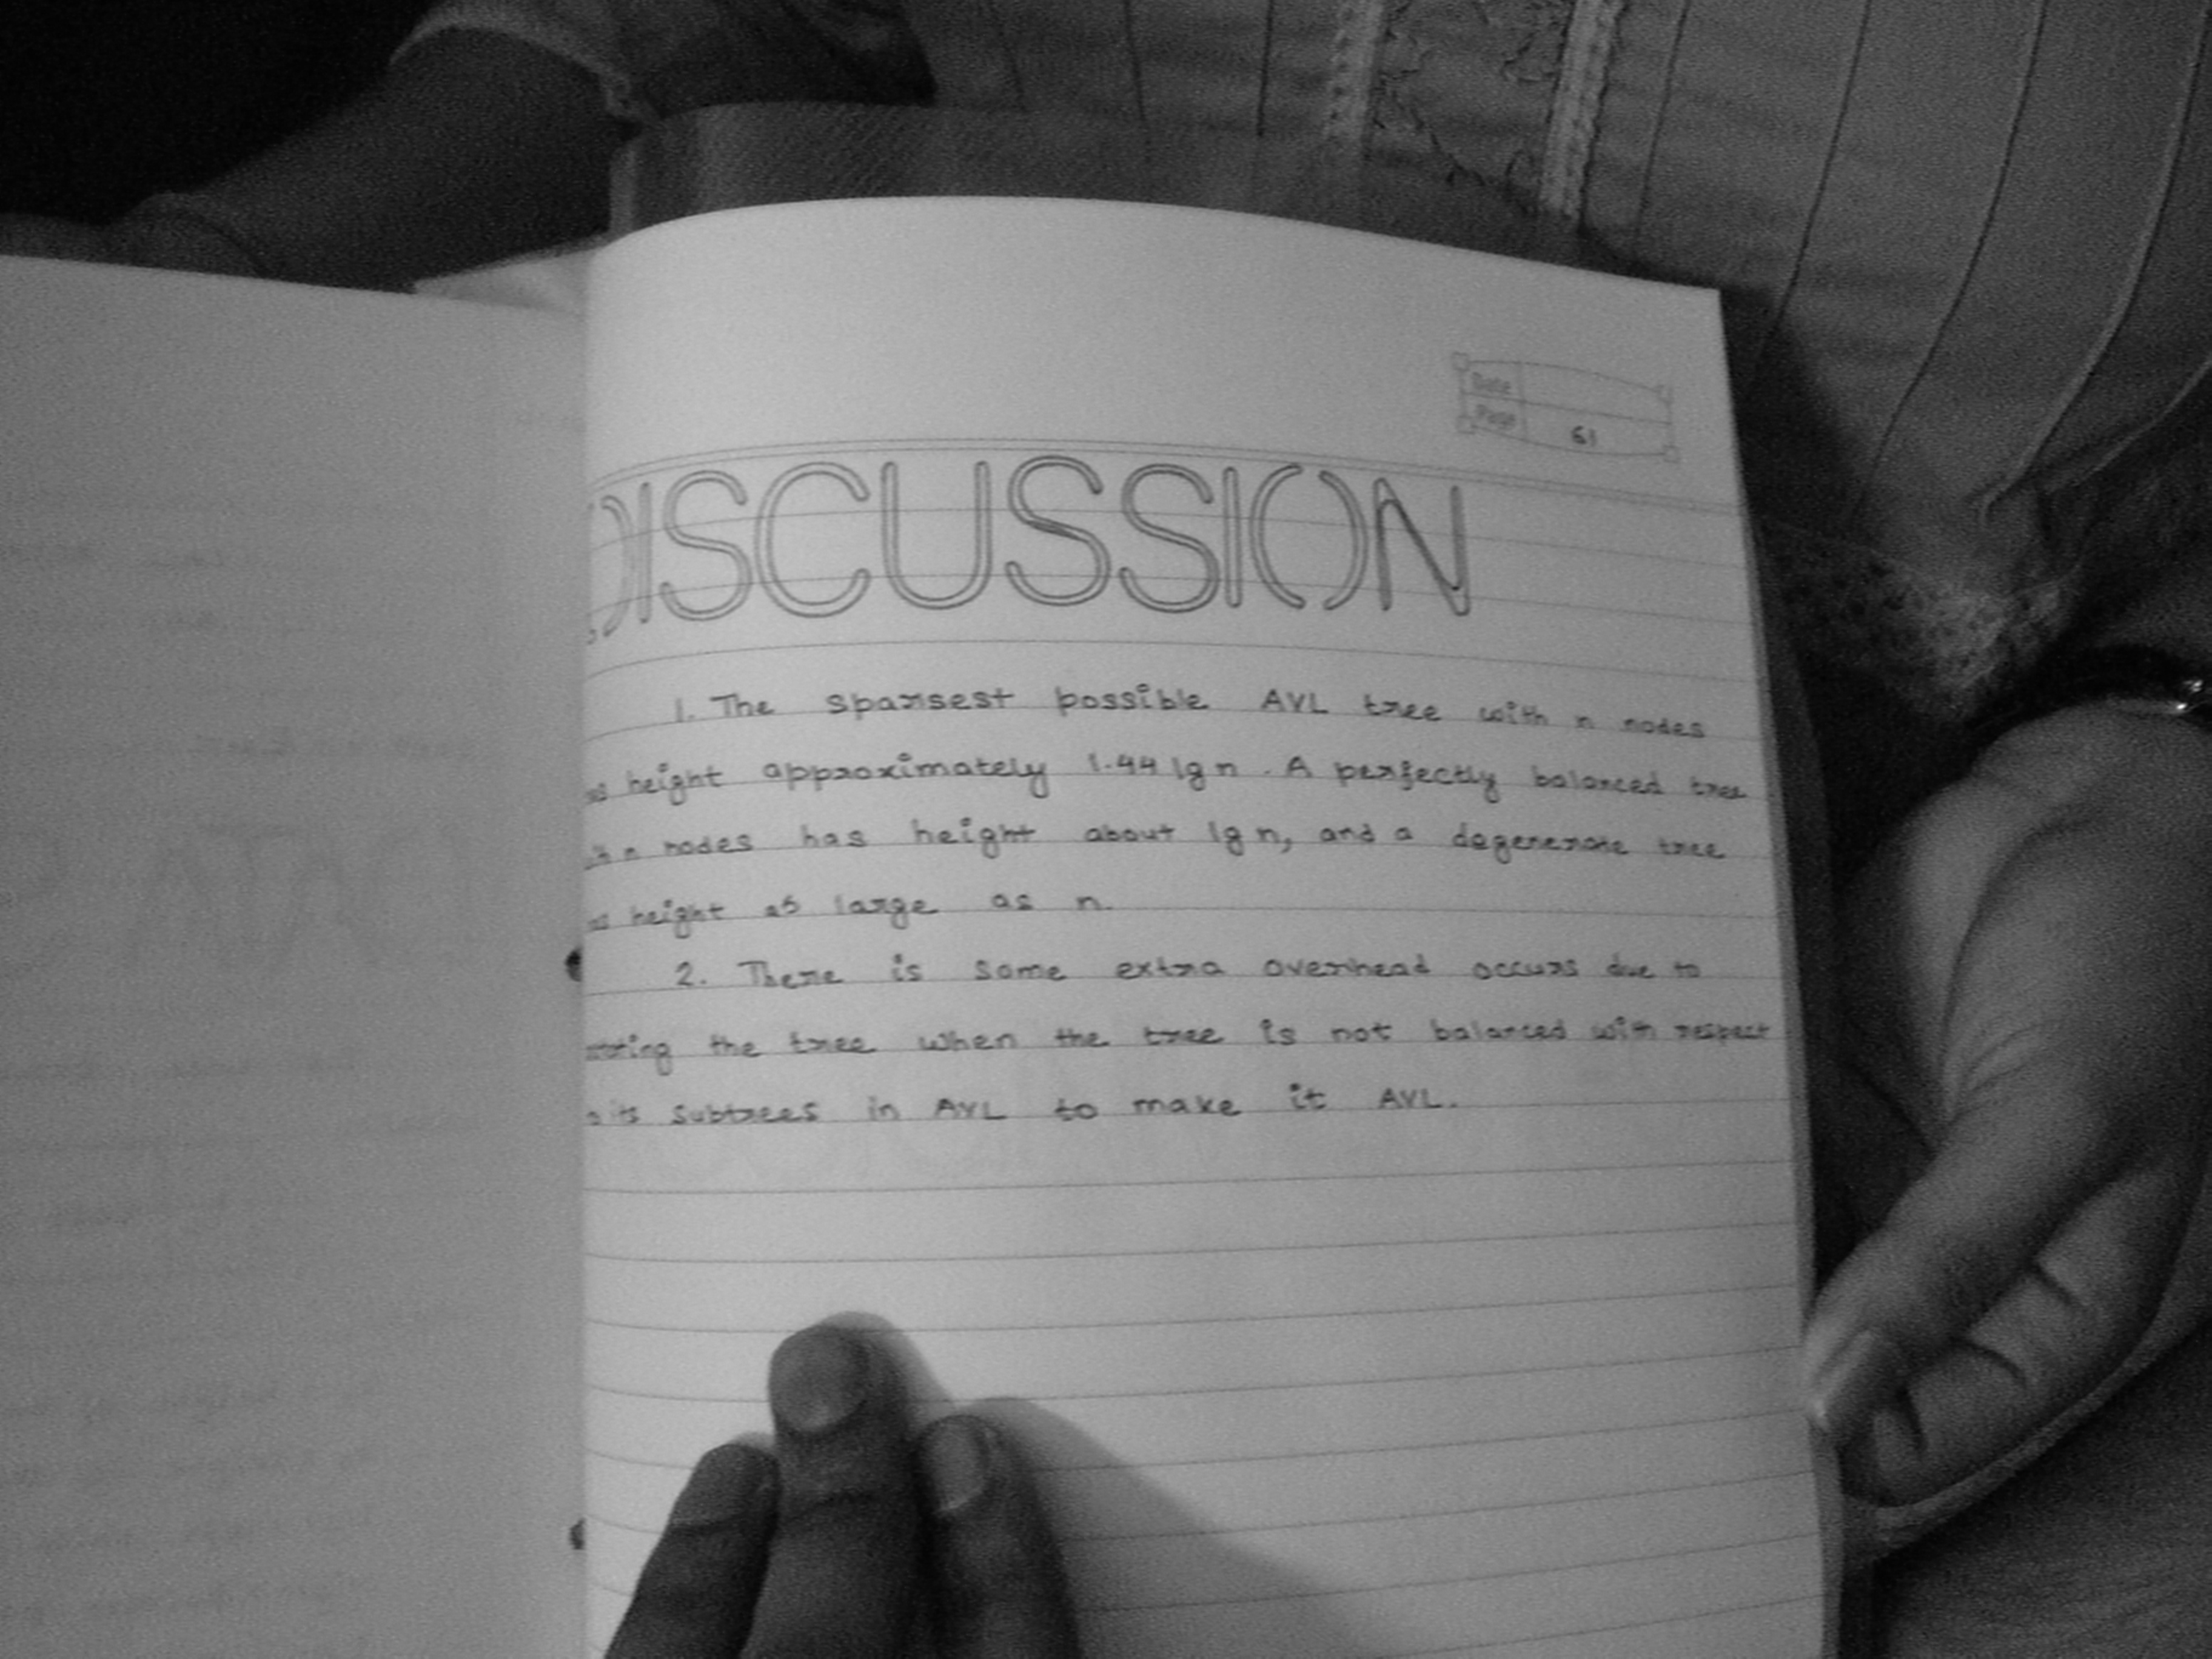 Date
Page 61
DISCUSSION
1. The sparsest possible AVL tree with n nodes
height approximately 1.44 lg n. A perfectly balanced tree
n nodes has height about lg n, and a degenerate tree
height as large as n.
2. There is some extra overhead occurs due to
the tree when the tree is not balanced with respect
its subtrees in AVL to make it AVL.